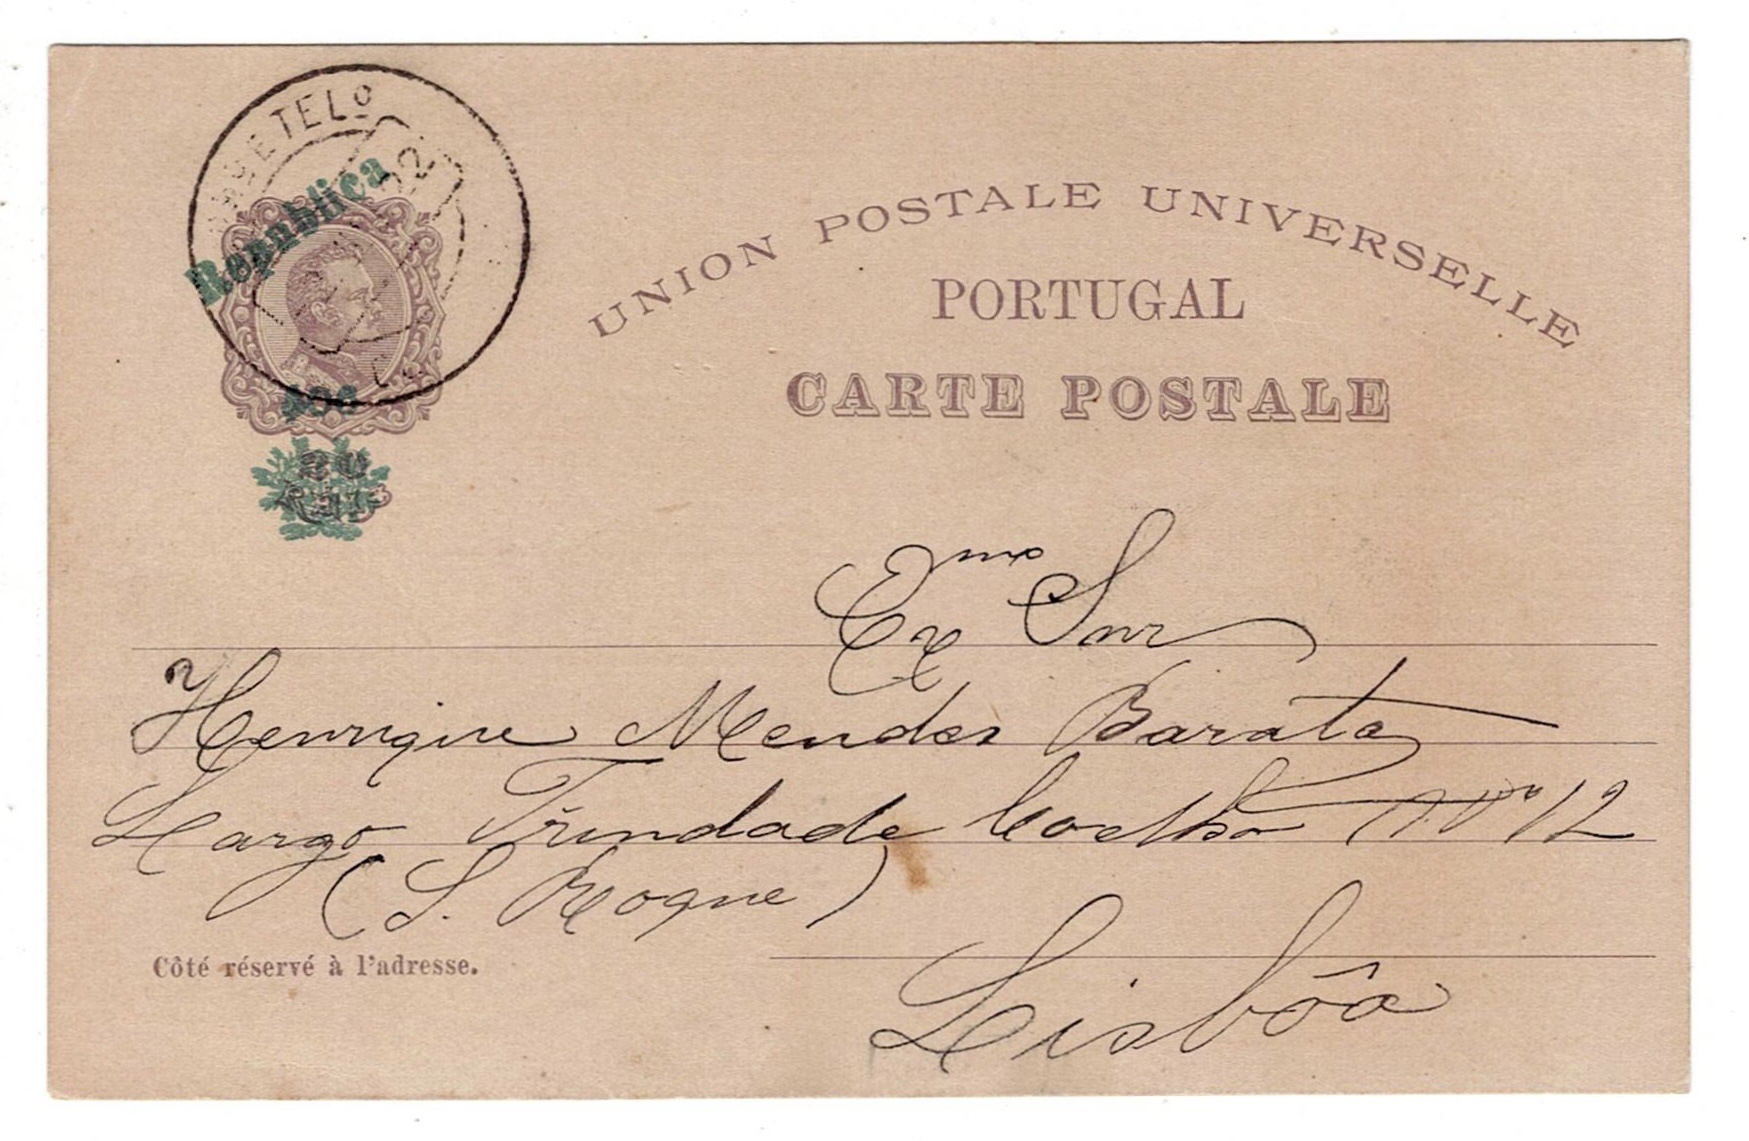 TELº
22
Republica
UNION POSTALE UNIVERSELLE
PORTUGAL
CARTE POSTALE
Reis
Exmo Snr
Henrique Mendes Barata
Largo Trindade Coelho Nº 12
(S. Roque)
Côté réservé à l'adresse.
Lisbôa